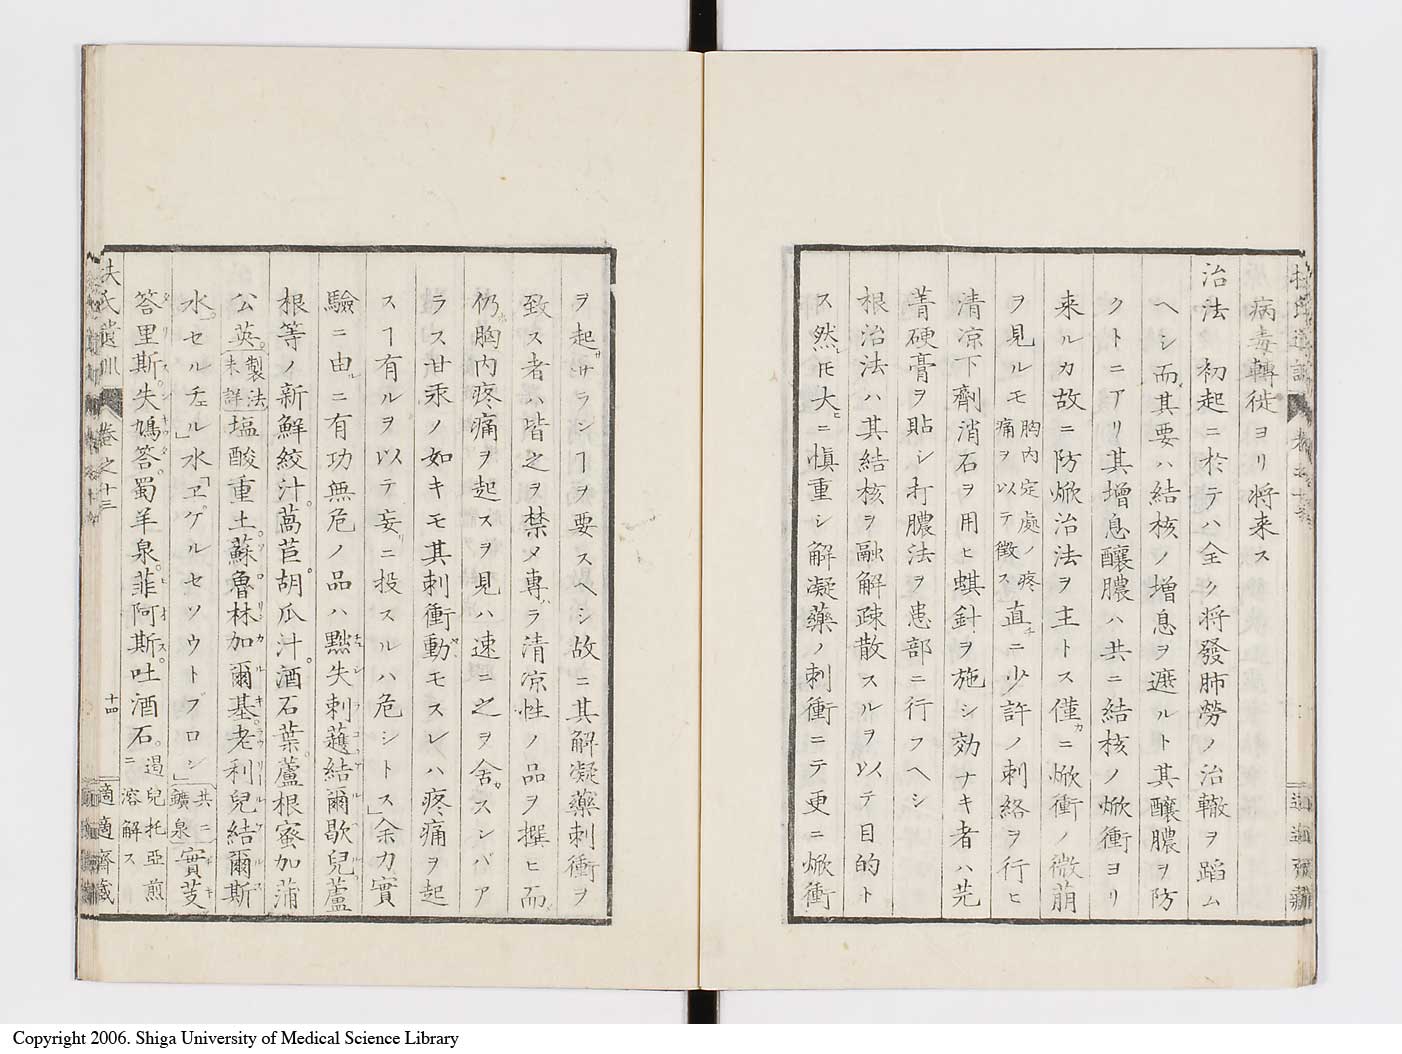 病毒轉徙ヨリ将来ス
治法 初起ニ於テハ全ク将發肺勞ノ治轍ヲ蹈ム
ヘシ而其要ハ結核ノ増息ヲ遮ルト其釀膿ヲ防
クトニアリ其増息釀膿ハ共ニ結核ノ焮衝ヨリ
来ルカ故ニ防焮治法ヲ主トス僅ニ焮衝ノ微萠
ヲ見ルモ胸内定處ノ疼痛ヲ以テ徴ス直ニ少許ノ刺絡ヲ行ヒ
清凉下劑消石ヲ用ヒ蜞針ヲ施シ効ナキ者ハ芫
菁硬膏ヲ貼シ打膿法ヲ患部ニ行フヘシ
根治法ハ其結核ヲ融解疎散スルヲ以テ目的ト
ス然𪜈大ニ慎重シ解凝藥ノ刺衝ニテ更ニ焮衝
ヲ起サラシヿヲ要スヘシ故ニ其解凝藥刺衝ヲ
致ス者ハ皆之ヲ禁メ專ラ清凉性ノ品ヲ撰ヒ而
仍胸内疼痛ヲ起スヲ見ハ速ニ之ヲ舍スンバア
ラス甘汞ノ如キモ其刺衝動モスレハ疼痛ヲ起
スヿ有ルヲ以テ妄ニ投スルハ危シトス」余カ實
驗ニ由ニ有功無危ノ品ハ㸃失刺蕸結爾歇兒蘆
根等ノ新鮮絞汁。萵苣胡瓜汁。酒石葉。蘆根蜜加蒲
公英。製法未詳塩酸重土。蘇魯林加爾基。老利兒結爾斯
水。セルチェル」水「ヱゲルセソウトブロン」共ニ鑛泉實芰
答里斯。失鳩答。蜀羊泉。菲阿斯。吐酒石。遏兒托亞煎ニ溶解ス
扶氏遺訓 巻之十三 十四 適適齋藏